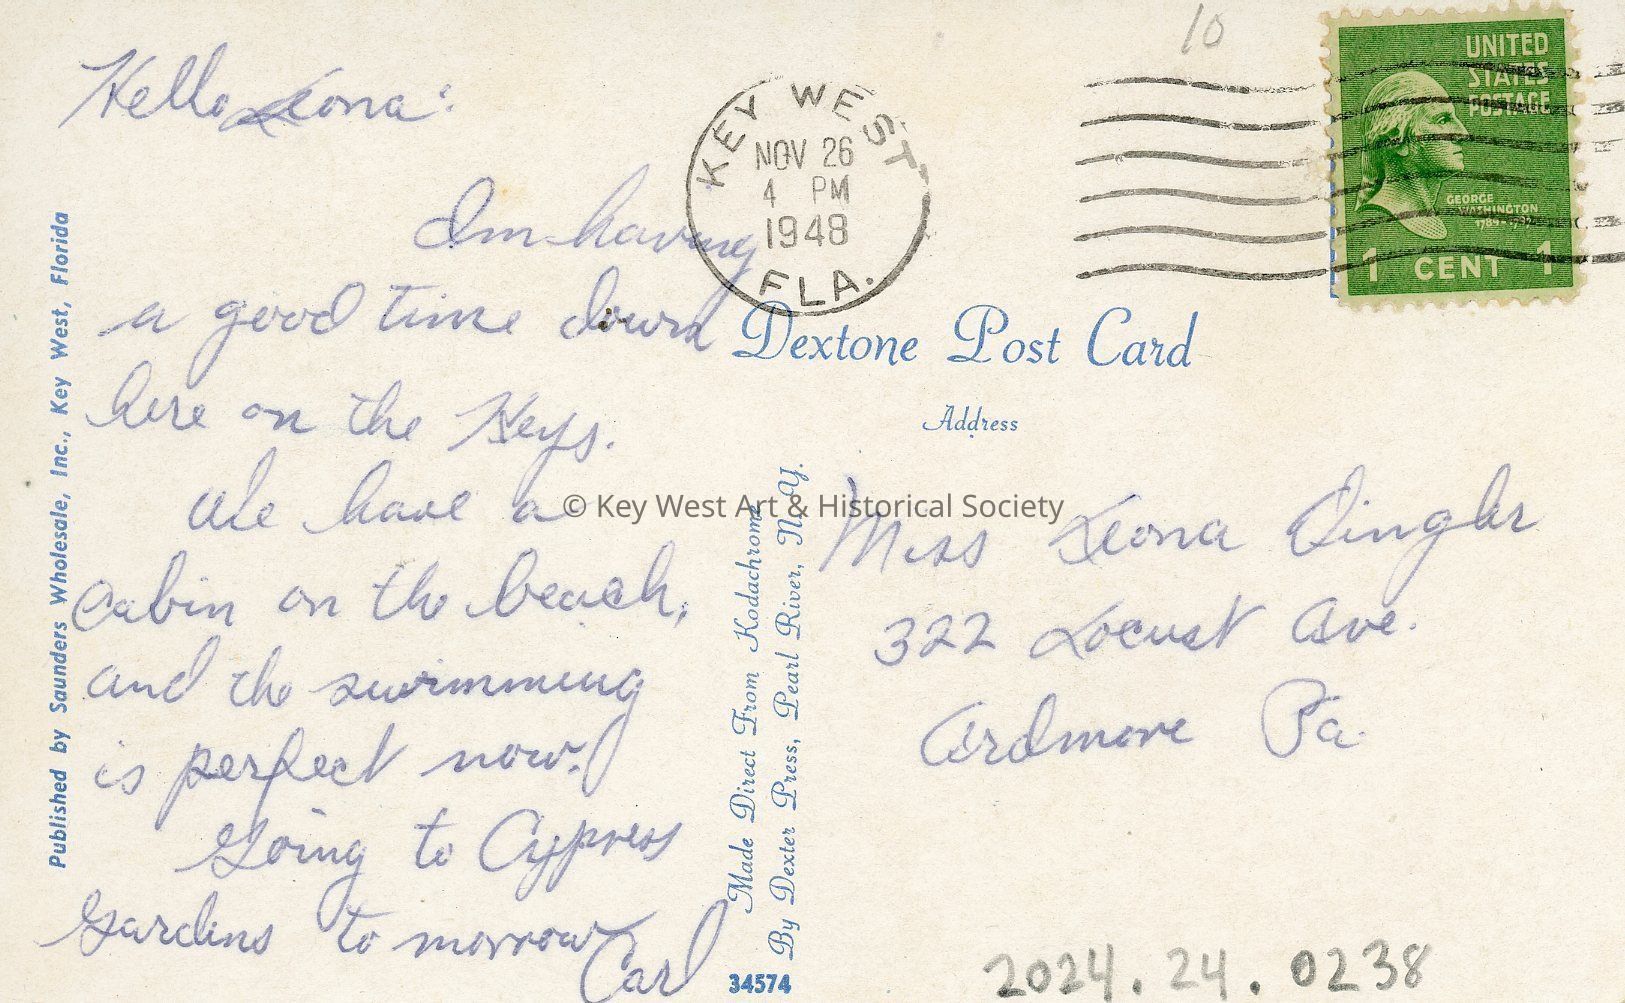 10
UNITED
STATES
POSTAGE
GEORGE
WASHINGTON
1 CENT 1
KEY WEST
NOV 26
4 PM
1948
FLA.
Hello Leona:
Im having
a good time down
here on the Keys.
We have a
cabin on the beach,
and the swimming
is perfect now.
Going to Cypress
Gardens to morrow
Carl
Published by Saunders Wholesale, Inc., Key West, Florida
Dextone Post Card
Address
Made Direct From Kodachrome
By Dexter Press, Pearl River, N. Y.
34574
© Key West Art & Historical Society
Miss Leona Dingler
322 Locust Ave.
Ardmore Pa.
2024.24.0238